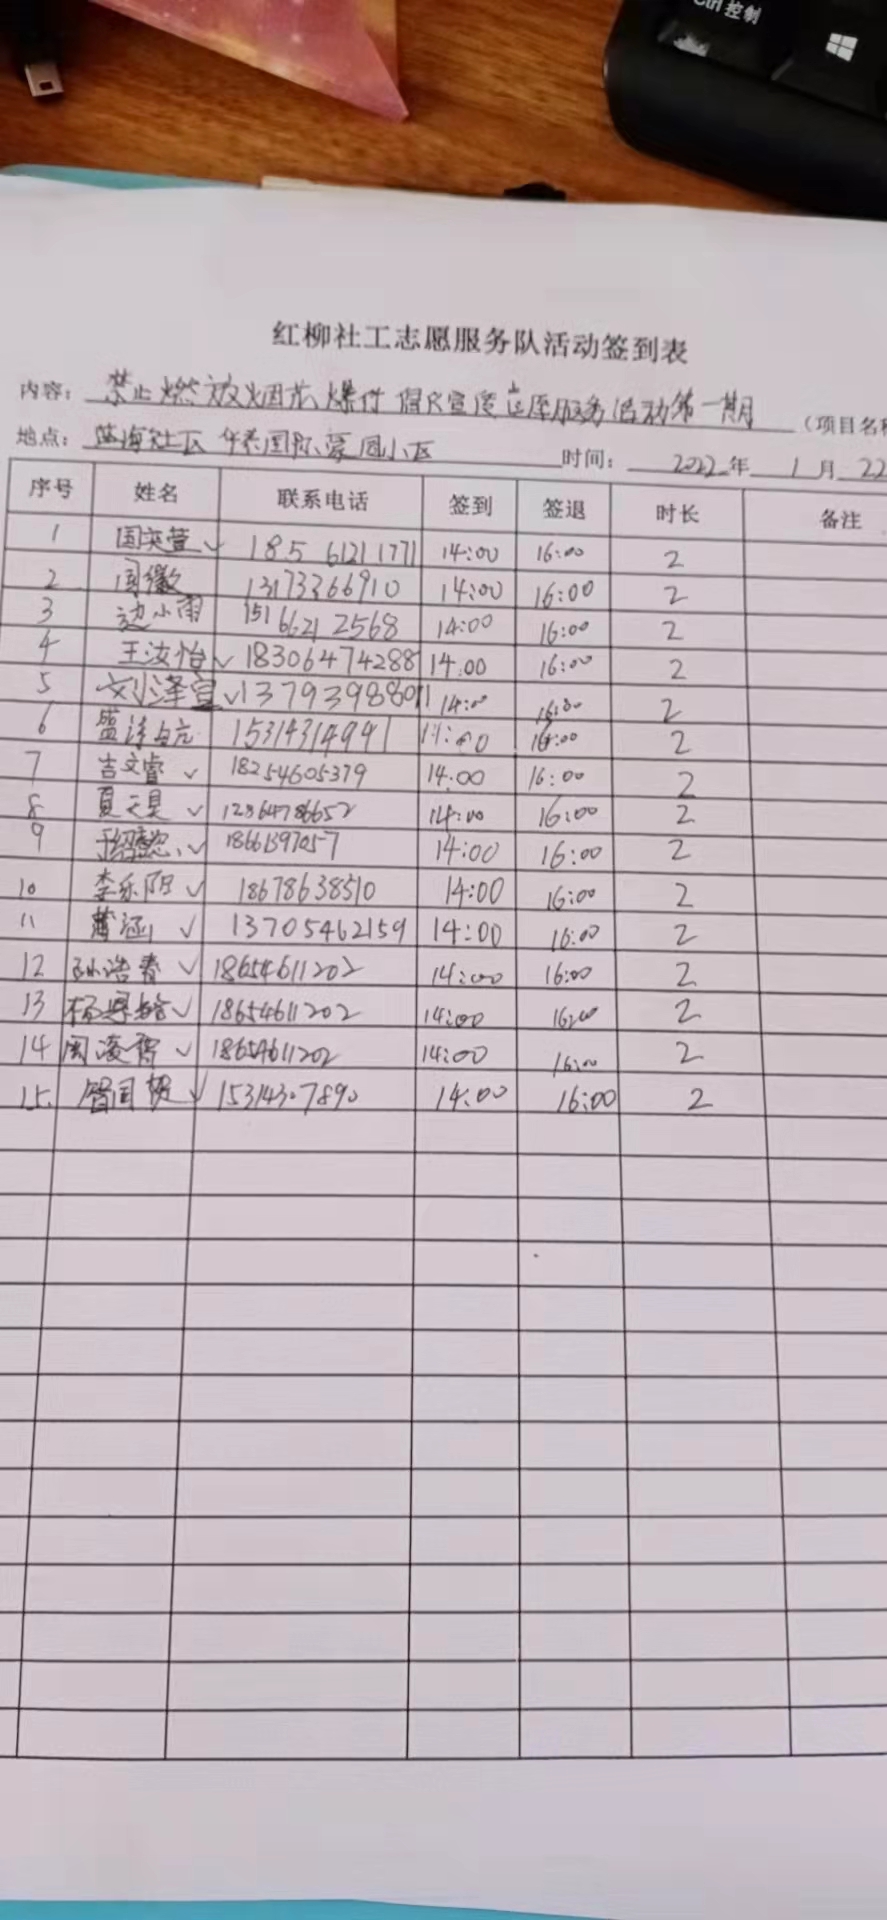 Ctrl 控制
红柳社工志愿服务队活动签到表
内容: 禁止燃放烟花爆竹 宣传志愿服务活动第一期 (项目名称
地点: 蓝海社区 小区 时间: 2022年 1月 22
序号 姓名 联系电话 签到 签退 时长 备注
1 国英萱 ✓ 185 6121 1771 14:00 16:00 2
2 周徽 13173366910 14:00 16:00 2
3 边小雨 151 6621 2568 14:00 16:00 2
4 王汝怡 ✓ 18306474288 14:00 16:00 2
5 刘泽宣 ✓ 13793988011 14:00 16:00 2
6 15314314941 14:00 16:00 2
7 吉文睿 ✓ 18254605379 14:00 16:00 2
8 夏天昊 ✓ 12864786652 14:00 16:00 2
9 ✓ 18661397057 14:00 16:00 2
10 李乐阳 ✓ 18678638510 14:00 16:00 2
11 涵 ✓ 13705462159 14:00 16:00 2
12 孙浩春 ✓ 18654611202 14:00 16:00 2
13 杨 ✓ 18654611202 14:00 16:00 2
14 周凌 ✓ 18654611202 14:00 16:00 2
15. ✓ 15314307890 14:00 16:00 2